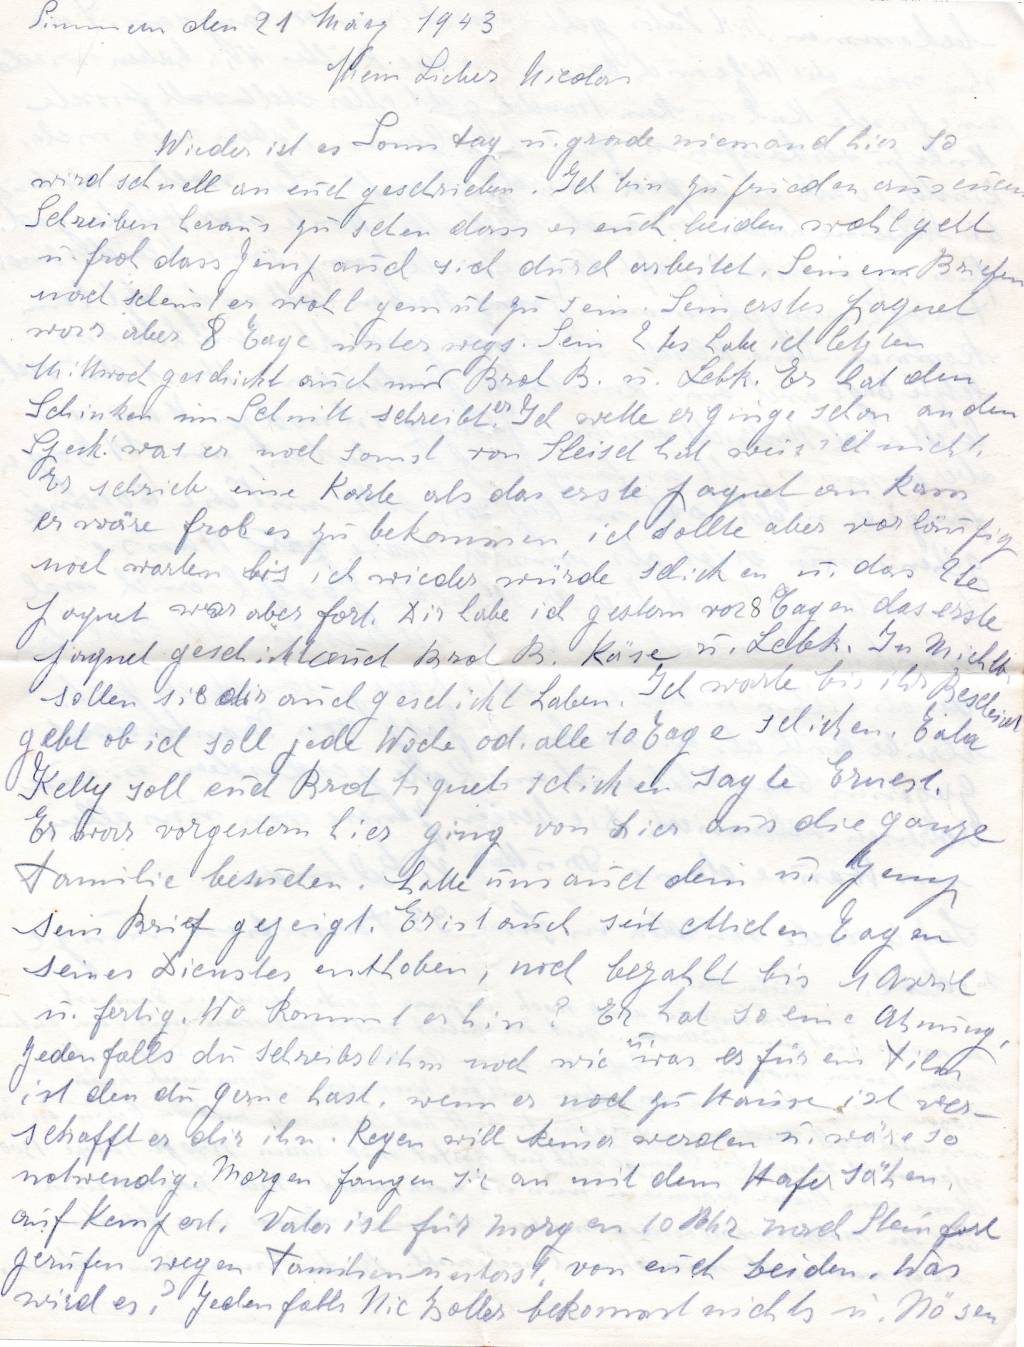 Simmern den 21 März 1943
Mein Lieber Nicolas
Wieder ist es Sonntag u. grade niemand hier so
wird schnell an euch geschrieben. Ich bin zufrieden aus euren
Schreiben heraus zu sehen dass es euch beiden wohl geht
u. froh dass Jemp auch sich durch arbeitet. Seinen Briefen
nach scheint er wohl gemut zu sein. Sein erstes Paquet
war aber 8 Tage unterwegs. Sein 2tes habe ich letzten
Mittwoch geschickt auch mit Brot B. u. Lebk. Er hat den
Schinken im Schnitt schreibt er. Ich wette er ginge schon an den
Speck was er noch sonst von Fleisch hat weis ich nicht.
Er schrieb eine Karte als das erste Paquet an kam
er wäre froh es zu bekommen, ich sollte aber vorläufig
noch warten bis ich wieder würde schicken u. das 2te
Paquet war aber fort. Dir habe ich gestern vor 8 Tagen das erste
Paquet geschickt auch Brot B. Käse u. Lebk. In
sollen sie dir auch geschickt haben. Ich warte bis ihr Bescheid
gebt ob ich soll jede Woche od. alle 10 Tage schicken.
Ketty soll euch Brot tiquets schicken sagte Ernest.
Er war vorgestern hier ging von hier aus die ganze
Familie besuchen. hatte uns auch dein u. Jemp
sein Brief gezeigt. Er ist auch seit etlichen Tagen
seines Dienstes enthoben, noch bezahlt bis 1 April
u. fertig. Wo kommt er hin? Er hat so eine Ahnung,
Jedenfalls du schreibst ihm noch wie u. was es für ein Film
ist den du gerne hast. wenn er noch zu Hause ist ver-
schafft er dir ihn. Regen will keiner werden u. wäre so
notwendig. Morgen fangen sie an mit dem Hafer sähen,
auf Kempert. Vater ist für morgen 10 Uhr nach Steinfort
gerufen wegen Familienunterst. von euch beiden. Was
wird es? Jedenfalls Nic Zoller bekommt nichts u. Nösen